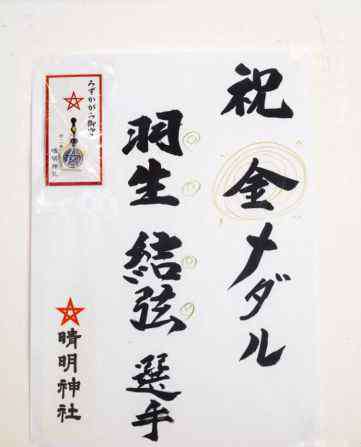 祝 金メダル
羽生 結弦 選手
みずかがみ御守
晴明神社
晴明神社